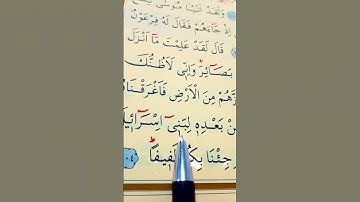 وَلَقَدْ اٰتَيْنَا مُوسٰى تِسْعَ
اِذْ جَٓاءَهُمْ فَقَالَ لَهُ فِرْعَوْنُ
قَالَ لَقَدْ عَلِمْتَ مَٓا اَنْزَلَ
بَصَٓائِرَ وَاِنّ۪ي لَاَظُنُّكَ
مِنَ الْاَرْضِ فَاَغْرَقْنَا
بَعْدِه۪ لِبَن۪ٓي اِسْرَٓائ۪يلَ
جِئْنَا لَف۪يفًا